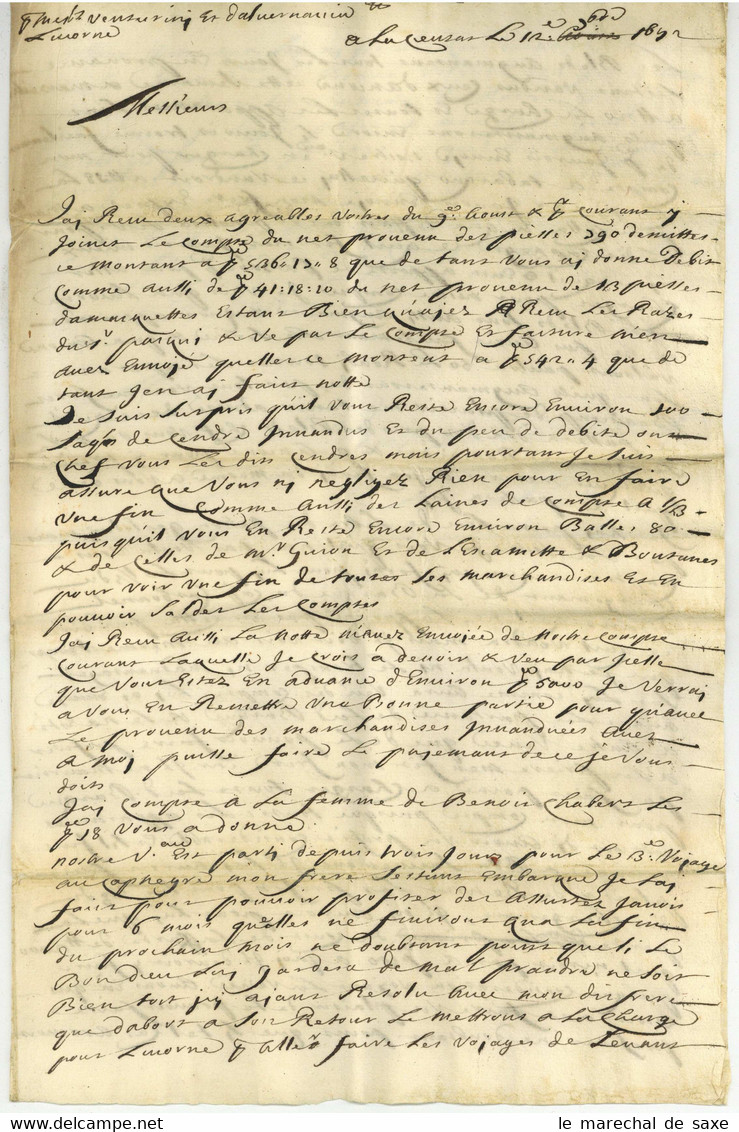 Mess.rs Venturini et dalvernaccia
Livorne
a La Ceutat Le 12e 7bre 1692
Messieurs
Jai Receu deux agreables Vostres du 9e. Aoust & p.r courant y
Joinct Le Compte du net prouenu des piesses 390 demittes
ce montant a p 536:13:8 que de tant Vous ai donne Debit
comme aussi de p 41:18:10 du net prouenu de 13 piesses
damanuettes Estant Bien quajez Receu Les Razes
du Sr. & Ve par Le Compte Et facture m'en
auez Enuoje quelles ce montent a p 542:4 que de
tant Jen ai faict notte
Je suis surpris quil Vous Reste Encore Enuiron 100
de Cendre Jnuandus Et du peu de debite ont
chef Vous Les dits cendres mais pourtant Je suis
assure que Vous ni negligez Rien pour En faire
Vne fin Comme aussi des Laines de Compte A 1/3
puisquil Vous En Reste Encore Enuiron Balles 80
& de celles de Mr Guion Et de & Boutanes
pour voir Vne fin de toutes Les marchandises Et En
pouuoir salder Les Comptes
Jai Receu aussi La Notte m'auez Enuoiée de Nostre Compte
Courant Laquelle Je Crois a deuoir & Veu par Jcelle
que Vous Estez En aduance d'Enuiron p 5000 Je Verrai
a Vous En Remettre Vne Bonne partie pour quauec
Le prouenu des marchandises Jnuandues auez
a moi puisse faire Le pajemant de ce Je Vous
dois
Jai Compte a La femme de Benoit Chabert Les
p 18 Vous a donne
nostre V.au Est parti depuis trois Jours pour Le 3e. Vojage
au Capnegre mon frere sestant Embarque Je Lai
faict pour pouuoir profiter des Assurtez Jauois
pour 6 mois quelles ne finiront qua La fin
du prochain mois ne doubtant point que si Le
Bon dieu Lai gardera de mal prandre ne soit
Bien tost Jci ajant Resolu Auec mon dit frere
que dabort a son Retour Le mettrons a La charge
pour Liuorne p aller faire Les Vojages de Leuant
le marechal de saxe